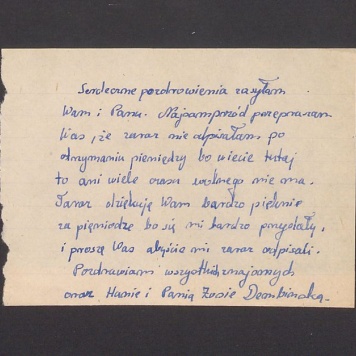 Serdeczne pozdrowienia zasyłam
Wam i Panu. Najsampszód przepraszam
Was, że zaraz nie odpisałam po
otrzymaniu pieniędzy bo wiecie tutaj
to ani wiele czasu wolnego nie ma.
Zaraz dziękuję Wam bardzo pięknie
za pieniądze bo się mi bardzo przydały,
i proszę Was abyście mi zaraz odpisali.
Pozdrawiam wszystkich znajomych
oraz Hanie i Panią Zosie Dembinską.